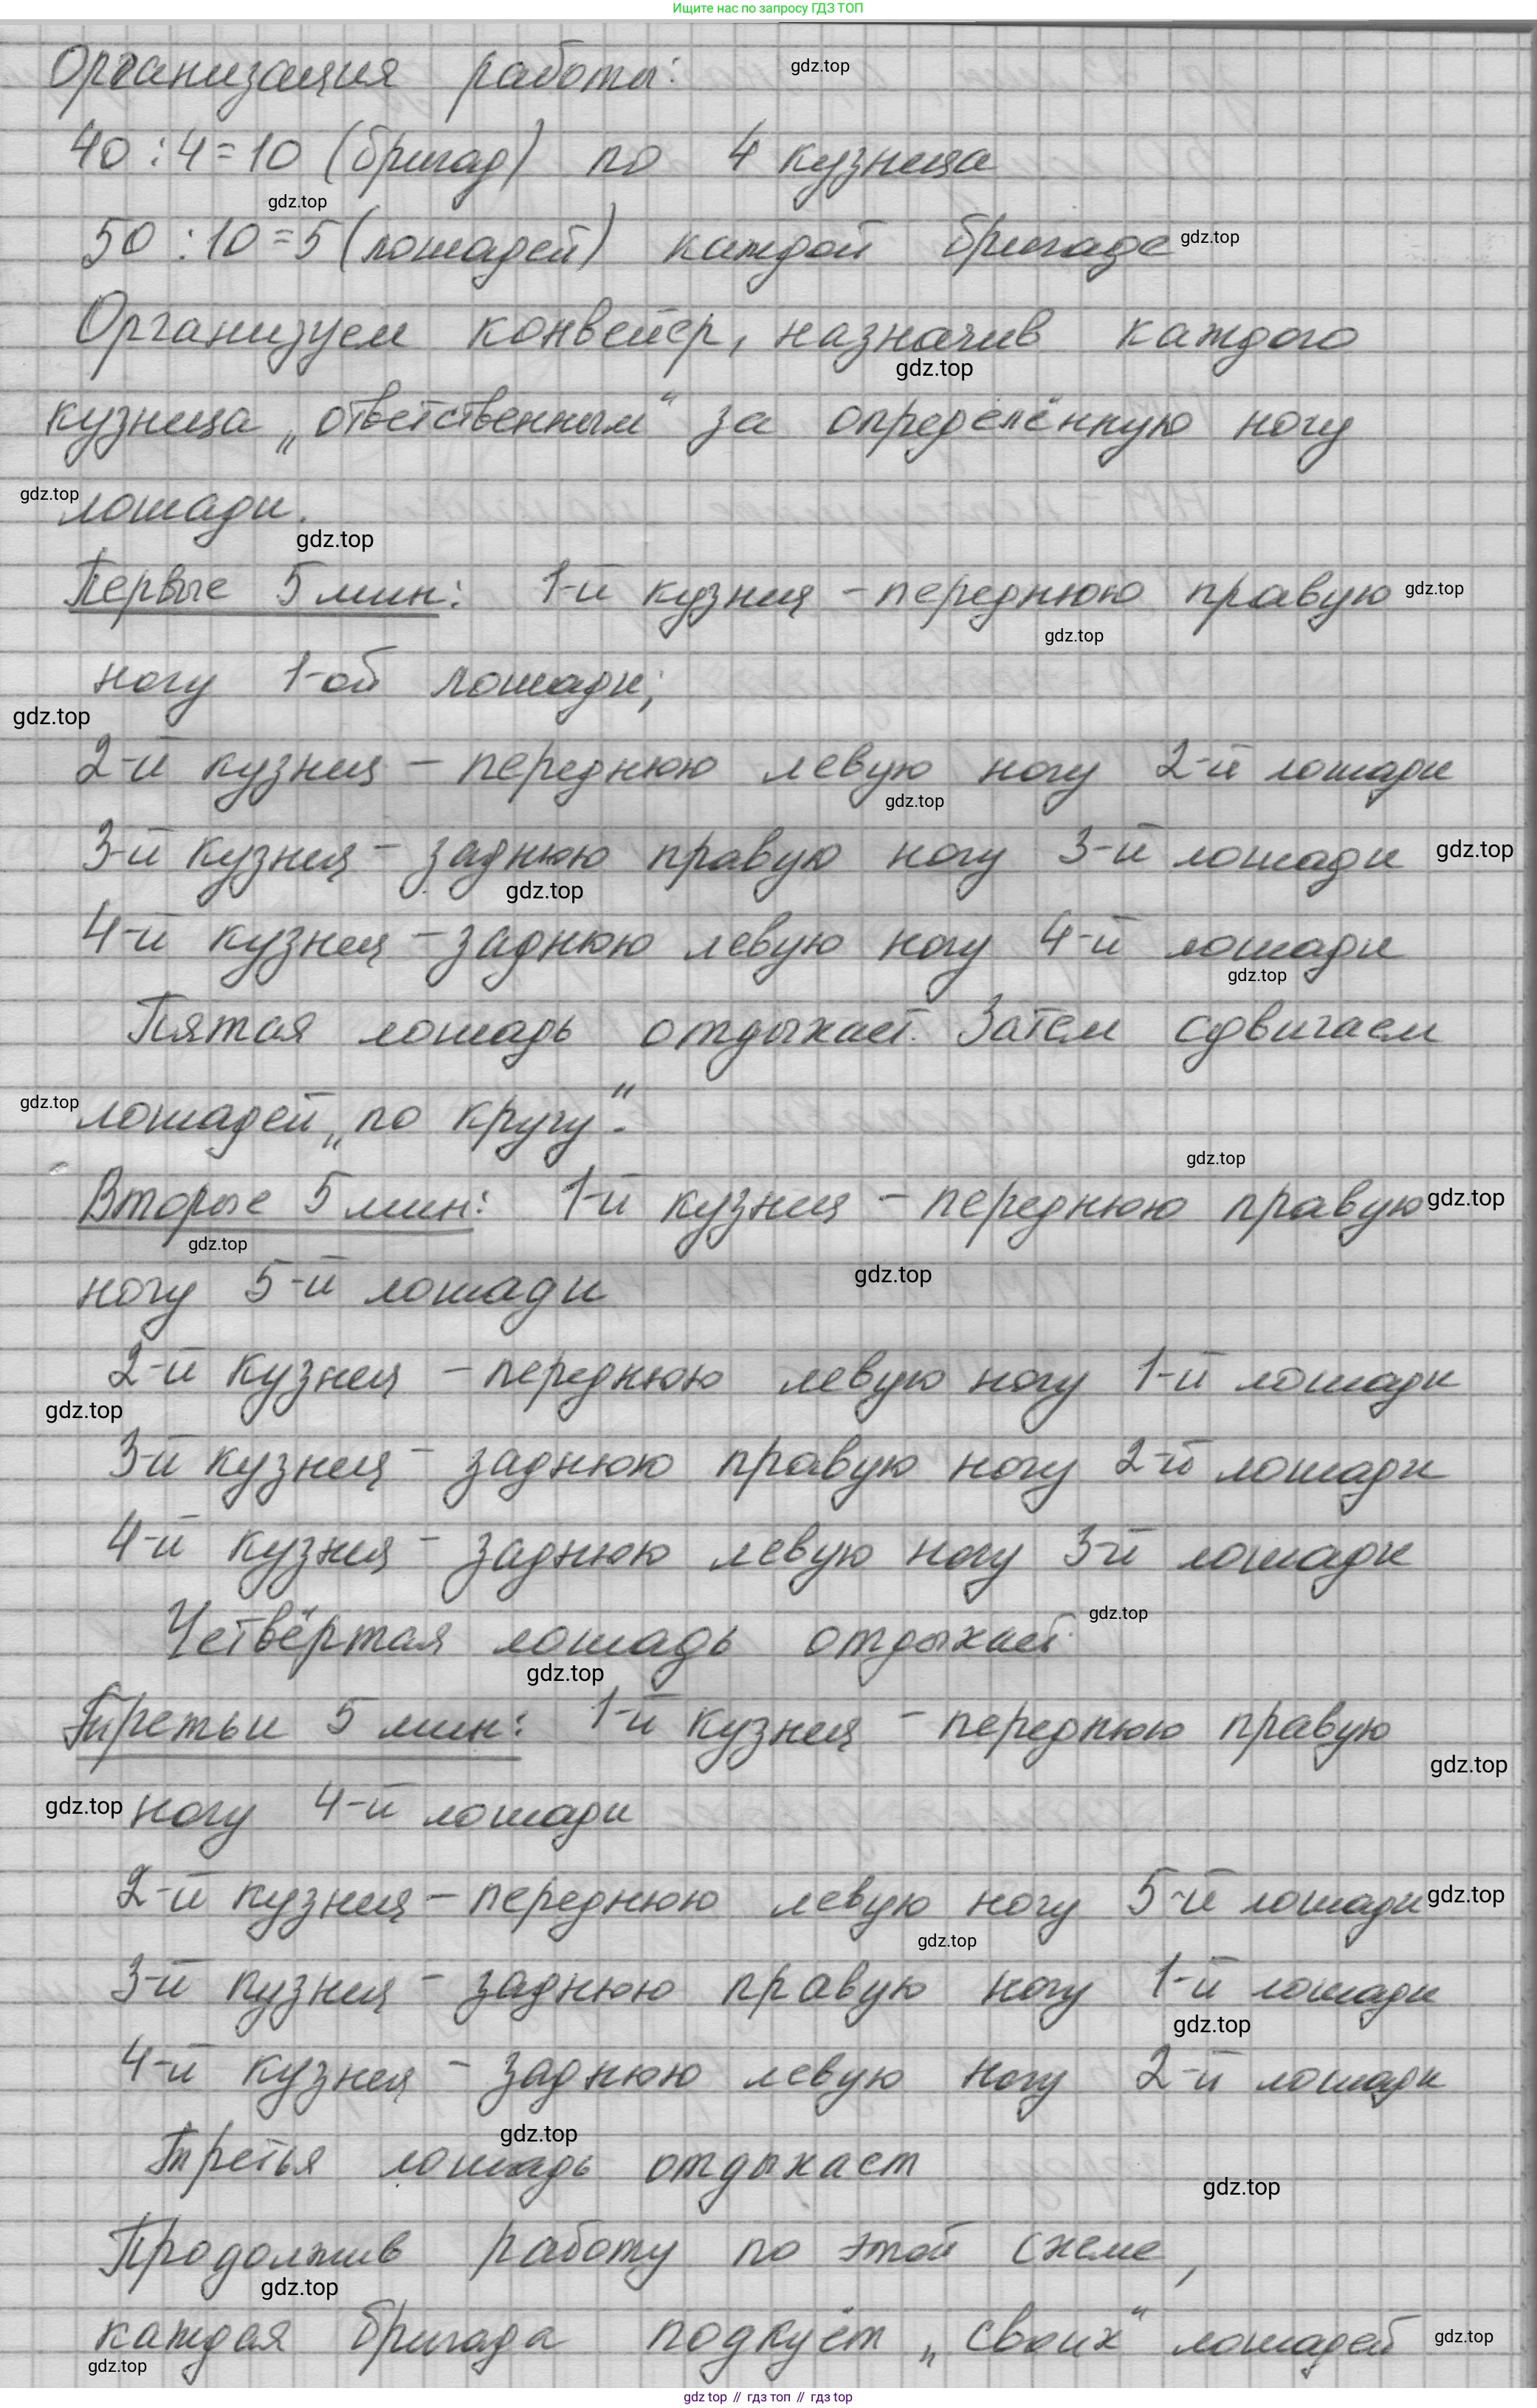 Ищите нас по запросу ГДЗ ТОП
Организация работы: gdz.top
40 : 4 = 10 (бригад) по 4 кузнеца
gdz.top
50 : 10 = 5 (лошадей) каждой бригаде gdz.top
Организуем конвейер, назначив каждого
gdz.top
кузнеца „ответственным“ за определённую ногу
gdz.top лошади.
gdz.top
Первые 5 мин: 1-й кузнец – переднюю правую gdz.top
gdz.top
ногу 1-ой лошади;
gdz.top
2-й кузнец – переднюю левую ногу 2-й лошади
gdz.top
3-й кузнец – заднюю правую ногу 3-й лошади gdz.top
gdz.top
4-й кузнец – заднюю левую ногу 4-й лошади
gdz.top
Пятая лошадь отдыхает. Затем сдвигаем
gdz.top лошадей „по кругу“.
gdz.top
Вторые 5 мин: 1-й кузнец – переднюю правую gdz.top
gdz.top
ногу 5-й лошади gdz.top
2-й кузнец – переднюю левую ногу 1-й лошади
gdz.top
3-й кузнец – заднюю правую ногу 2-й лошади
4-й кузнец – заднюю левую ногу 3-й лошади
Четвёртая лошадь отдыхает. gdz.top
gdz.top
Третьи 5 мин: 1-й кузнец – переднюю правую
gdz.top
gdz.top ногу 4-й лошади
2-й кузнец – переднюю левую ногу 5-й лошади gdz.top
gdz.top
3-й кузнец – заднюю правую ногу 1-й лошади
gdz.top
4-й кузнец – заднюю левую ногу 2-й лошади
gdz.top
Третья лошадь отдыхает
gdz.top
Продолжив работу по этой схеме,
gdz.top
каждая бригада подкуёт „своих“ лошадей gdz.top
gdz.top
gdz top // гдз топ // гдз top